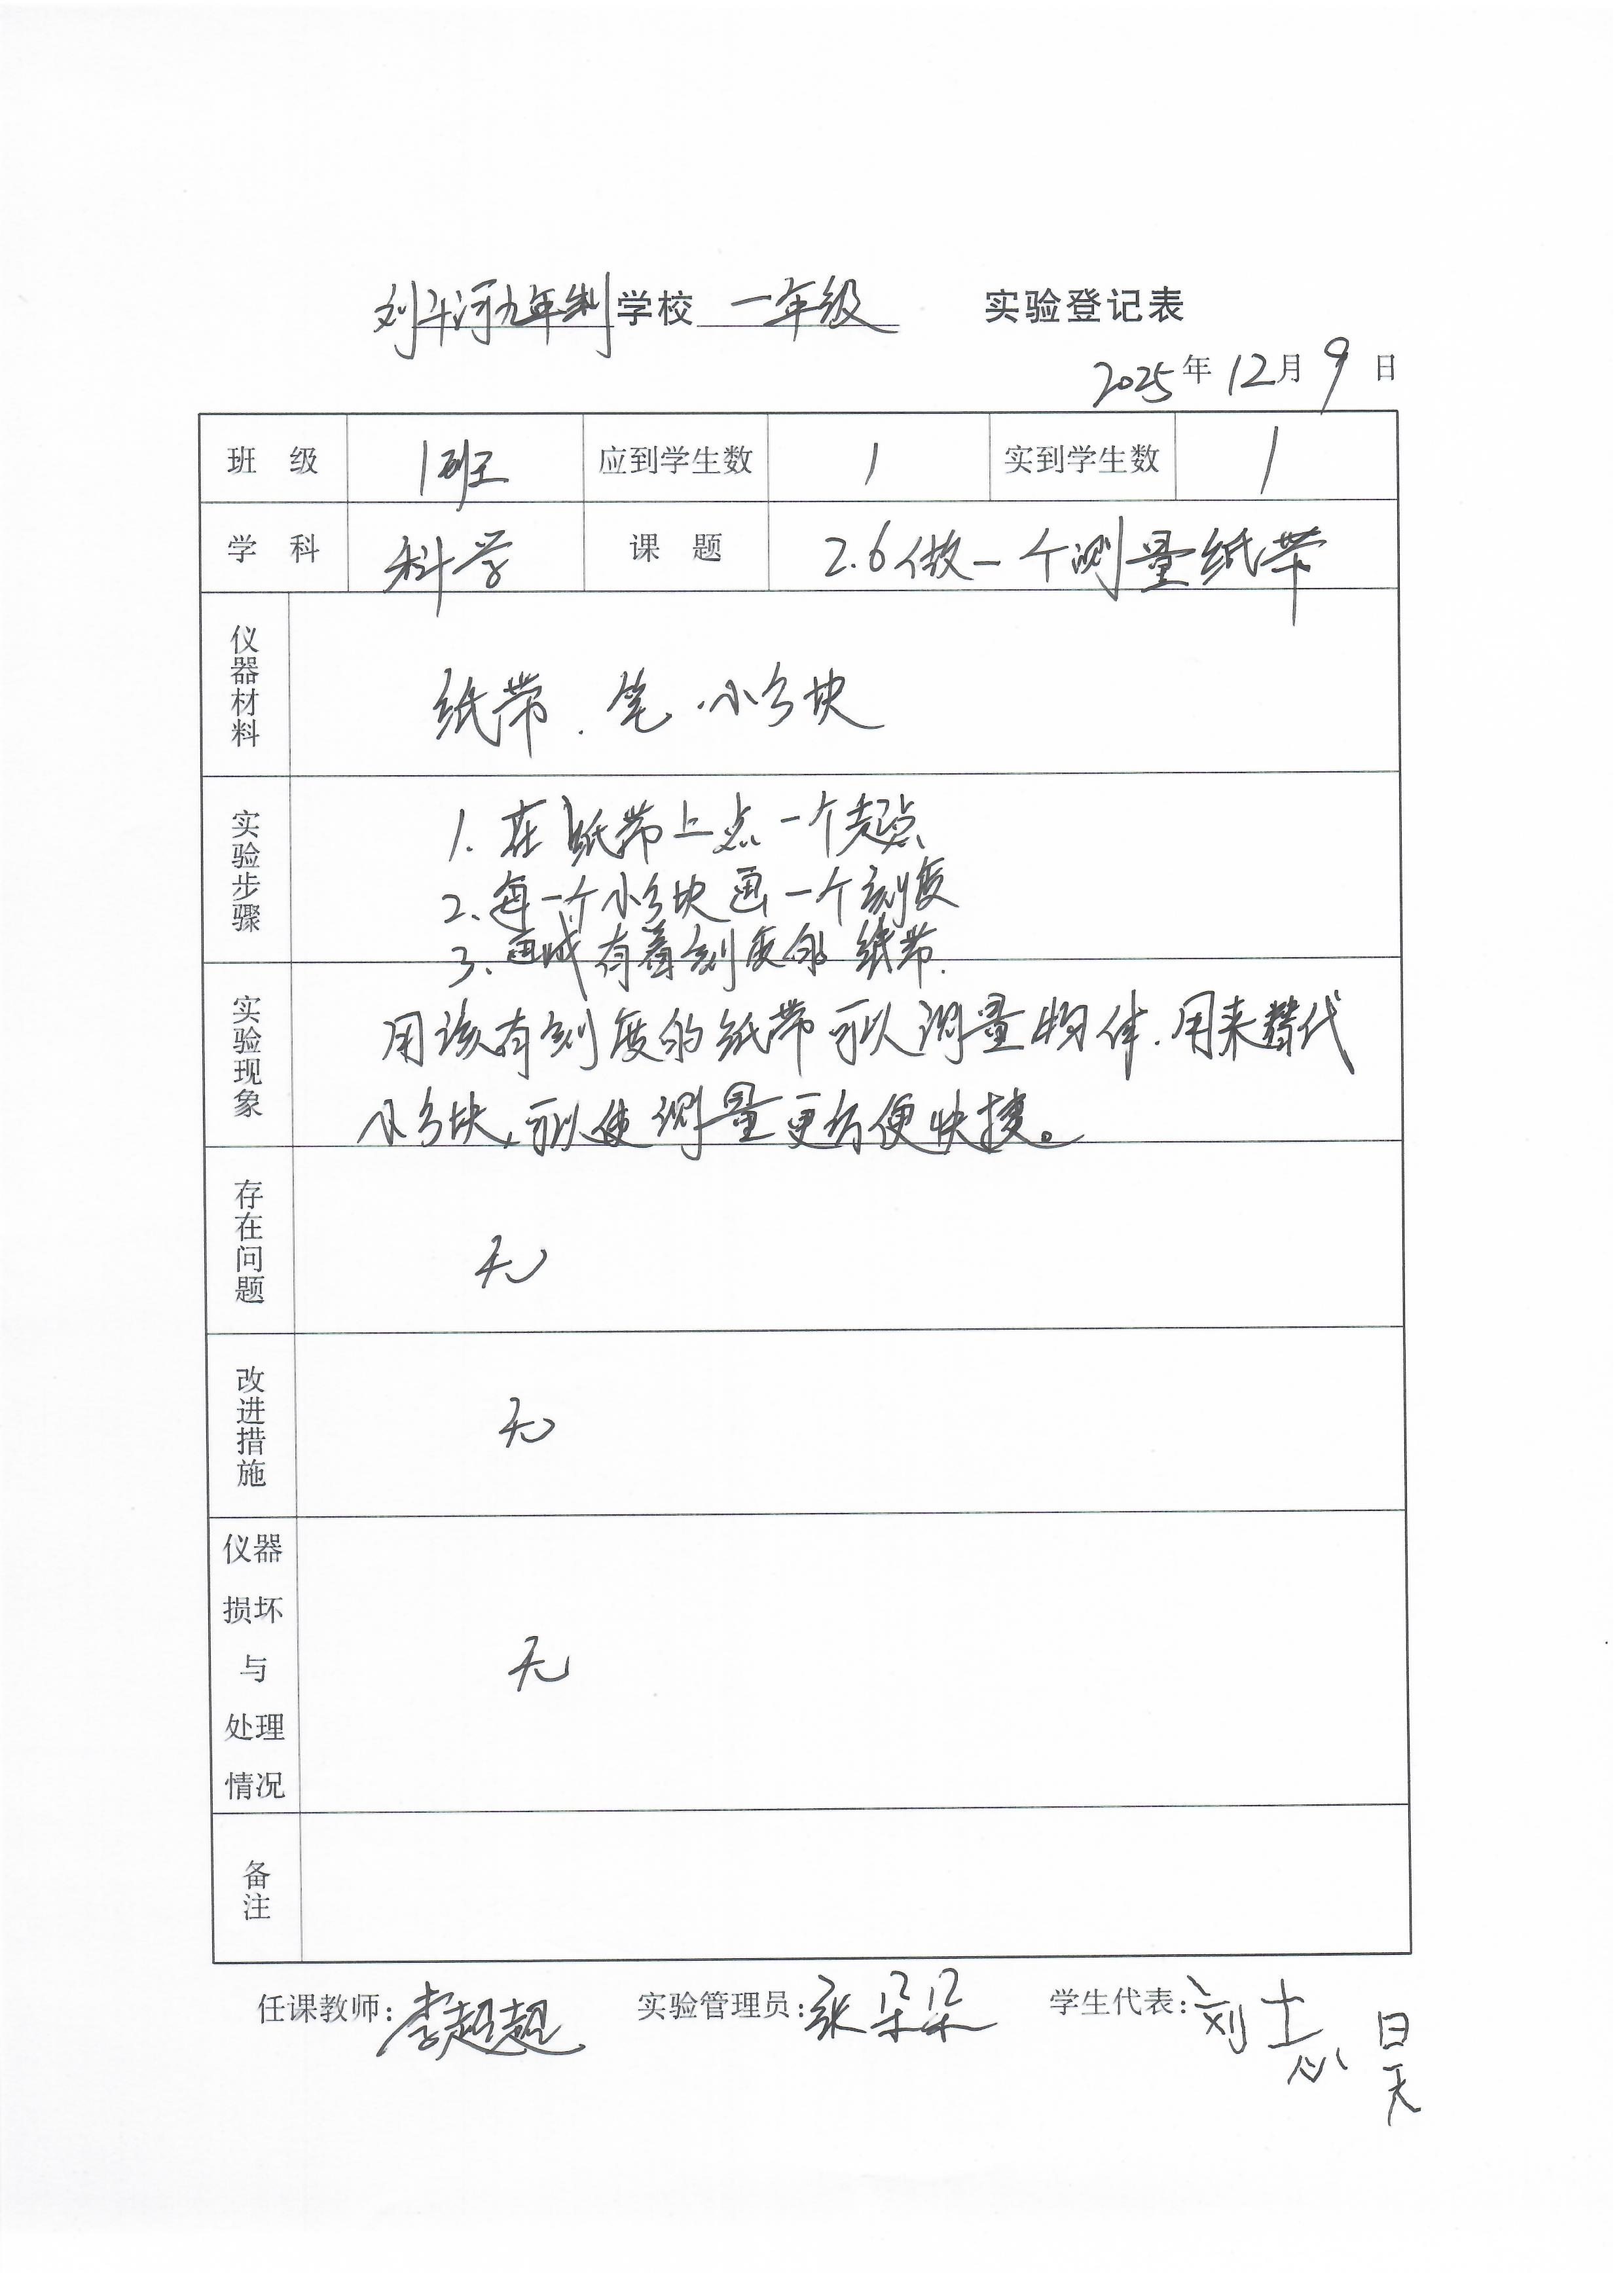 刘午河九年制学校 一年级 实验登记表
2025年12月9日
班 级 1班 应到学生数 1 实到学生数 1
学 科 科学 课 题 2.6做一个测量纸带
仪器材料 纸带、笔、小方块
实验步骤 1. 在纸带上点一个起点
2、每一个小方块画一个刻度
3、画成有着刻度的纸带.
实验现象 用该有刻度的纸带可以测量物体.用来替代
小方块,可以使测量更方便快捷。
存在问题 无
改进措施 无
仪器损坏与处理情况 无
备注
任课教师:李超超 实验管理员:张朵朵 学生代表:刘志昊